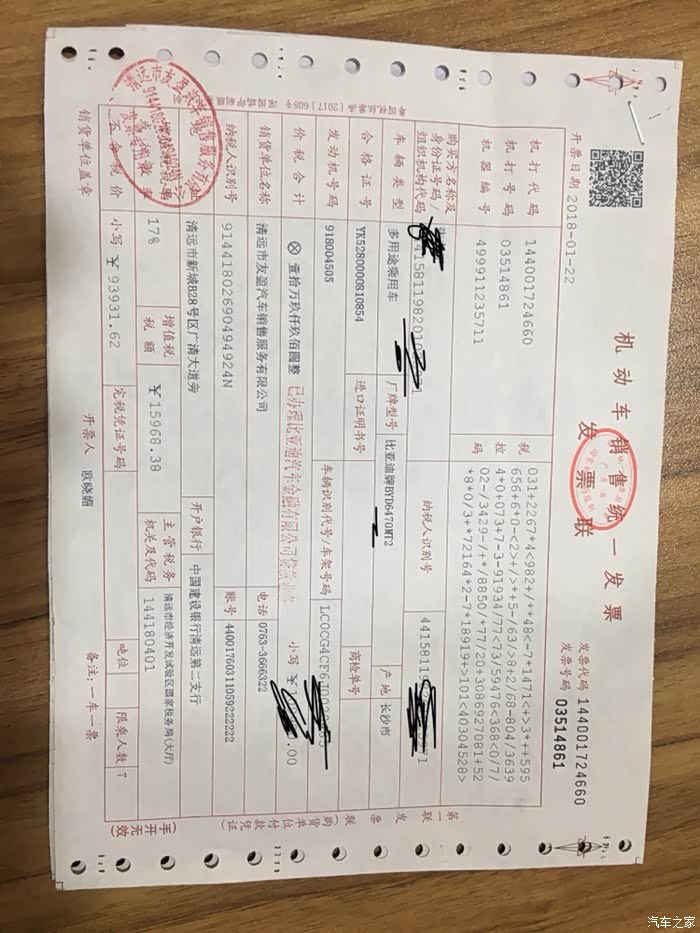 机动车销售统一发票
发票联
发票代码 144001724660
发票号码 03514861
开票日期 2018-01-22
机打代码 144001724660
机打号码 03514861
机器编号 499911235711
税控码
031+2267*4<982+/**48<-7*1471<+>3*++595
656+6*0-<2>+/>*+5-/63/>8+2/68-804/3639
4*0+073+7-3-91934/77<73/59476<368<0/7/
02-/3429-/+*/8850/+77/20+3086927081+52
*8*0/3+*72164*2-7*18919+>101<40304528>
购买方名称及身份证号码/组织机构代码
纳税人识别号
车辆类型 多用途乘用车 厂牌型号 比亚迪牌BYD6470MT2 产地 长沙市
合格证号 YK5280000810854 进口证明书号 商检单号
发动机号码 918004505 车辆识别代号/车架号码
价税合计 ⊗壹拾万玖仟玖佰圆整 小写
已办理比亚迪汽车金融有限公司贷款业务
销货单位名称 清远市友盈汽车销售服务有限公司 电话 0763-3666322
纳税人识别号 91441802690494924N 账号 44001760311059222222
清远市新城B28号区广清大道旁 开户银行 中国建设银行清远第二支行
17% 增值税税额 ¥15968.38 主管税务机关及代码 清远市经济开发试验区国家税务局(大厅) 144180401
小写 ¥93931.62 完税凭证号码 吨位 限乘人数 7
销货单位盖章 开票人 欧晓媚 备注:一车一票
第一联 发票联(购货单位付款凭证)
(手开无效)
汽车之家